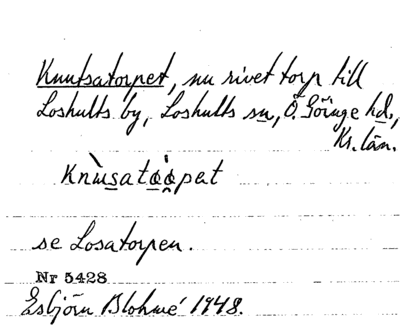 Knutsatorpet, nu rivet torp till
Loshults by, Loshults sn, Ö. Göinge hd.,
Kr. län.
se Losatorpen.
Nr 5428
Esbjörn Blohmé 1948.